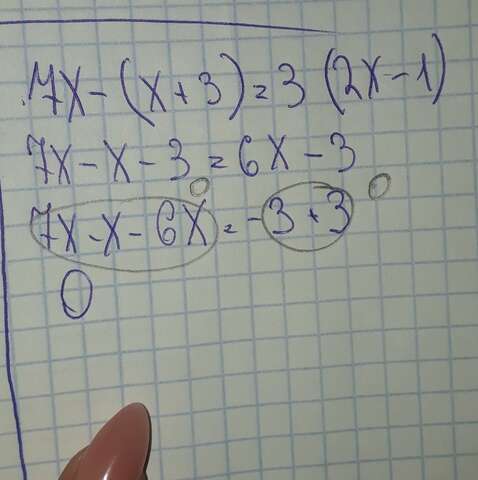 7x-(x+3)=3(2x-1)
7x-x-3=6x-3
0 0
7x-x-6x=-3+3
0